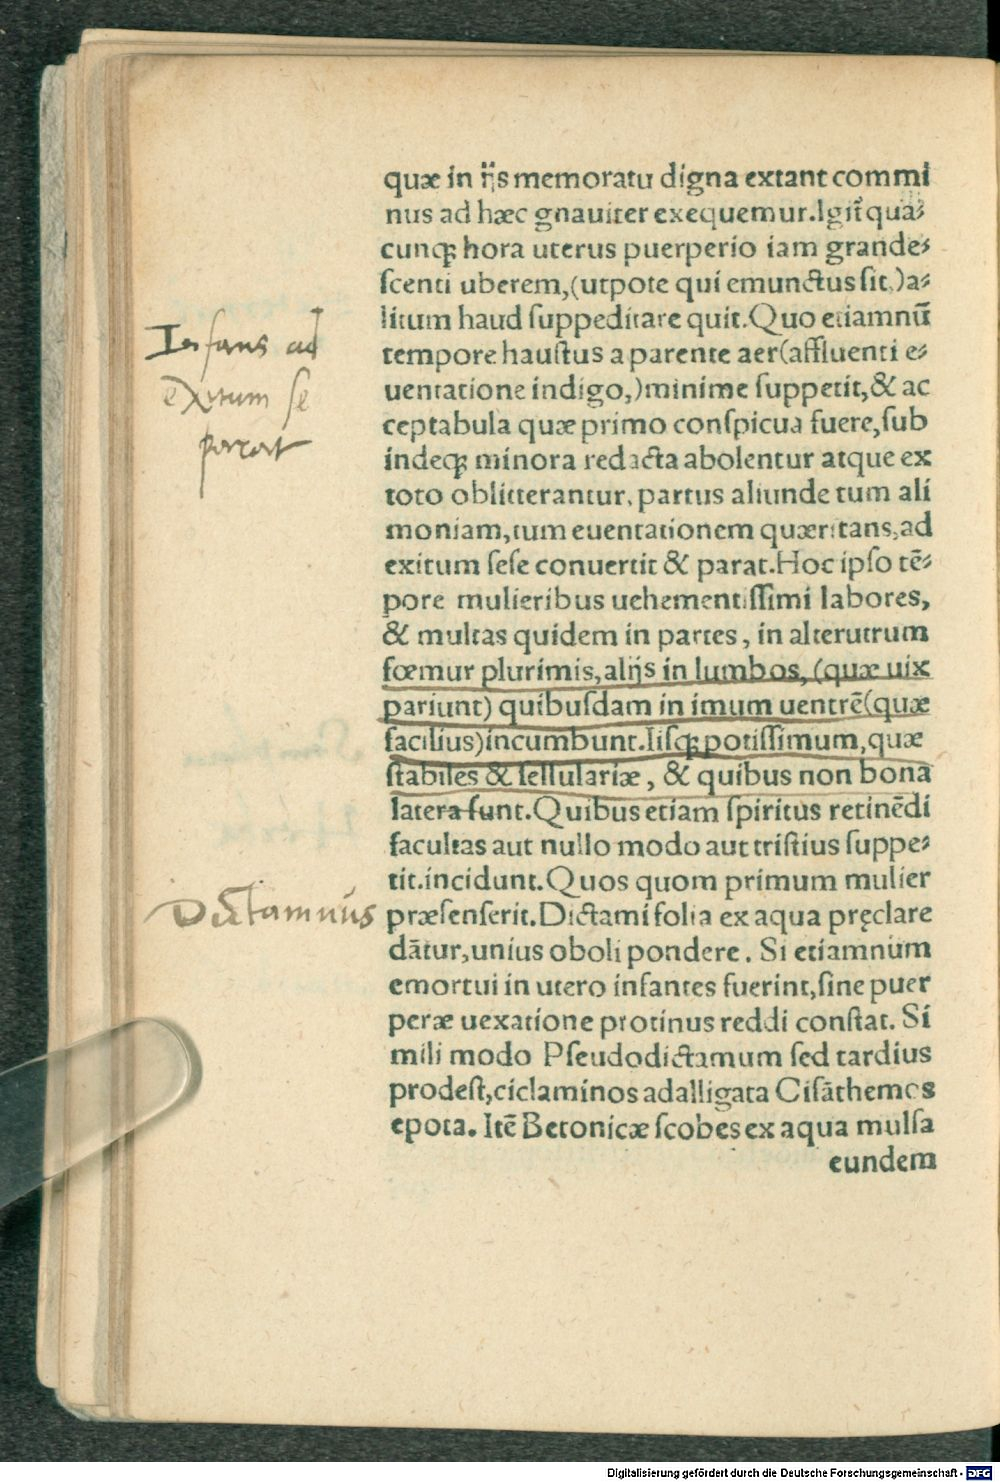 quæ in ijs memoratu digna extant commi
nus ad hæc gnauiter exequemur. Igit̃ qua⸗
cunqꝫ hora uterus puerperio iam grande⸗
ſcenti uberem,(utpote qui emunctus ſit,)a⸗
litum haud ſuppeditare quit. Quo etiamnũ
tempore hauſtus a parente aer(affluenti e⸗
uentatione indigo,)minime ſuppetit,& ac
ceptabula quæ primo conſpicua fuere, ſub
indeqꝫ minora redacta abolentur atque ex
toto oblitterantur, partus aliunde tum ali
moniam, tum euentationem quæritans, ad
exitum ſeſe conuertit & parat. Hoc ipſo tẽ⸗
pore mulieribus uehementiſſimi labores,
& multas quidem in partes, in alterutrum
fœmur plurimis, alijs in lumbos, (quæ uix
pariunt) quibuſdam in imum uentrẽ(quæ
facilius)incumbunt. Iiſqꝫ potiſſimum, quæ
ſtabiles & ſellulariæ, & quibus non bona
latera ſunt. Quibus etiam ſpiritus retinẽdi
facultas aut nullo modo aut triſtius ſuppe⸗
tit. incidunt. Quos quom primum mulier
præſenſerit. Dictami folia ex aqua pręclare
dãtur, unius oboli pondere. Si etiamnum
emortui in utero infantes fuerint, ſine puer
peræ uexatione protinus reddi conſtat. Si
mili modo Pſeudodictamum ſed tardius
prodeſt, ciclaminos adalligata Ciſãthemos
epota. Itẽ Betonicæ ſcobes ex aqua mulſa
eundem
Infans ad
exitum se
parat
Dictamnus
Digitalisierung gefördert durch die Deutsche Forschungsgemeinschaft - DFG